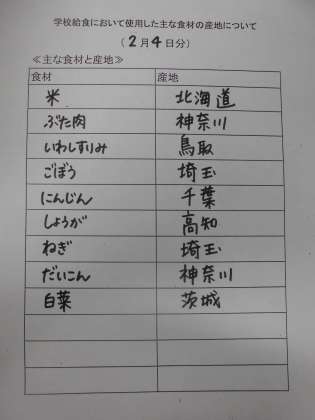 学校給食において使用した主な食材の産地について
(2月4日分)
≪主な食材と産地≫
食材 産地
米 北海道
ぶた肉 神奈川
いわしすりみ 鳥取
ごぼう 埼玉
にんじん 千葉
しょうが 高知
ねぎ 埼玉
だいこん 神奈川
白菜 茨城